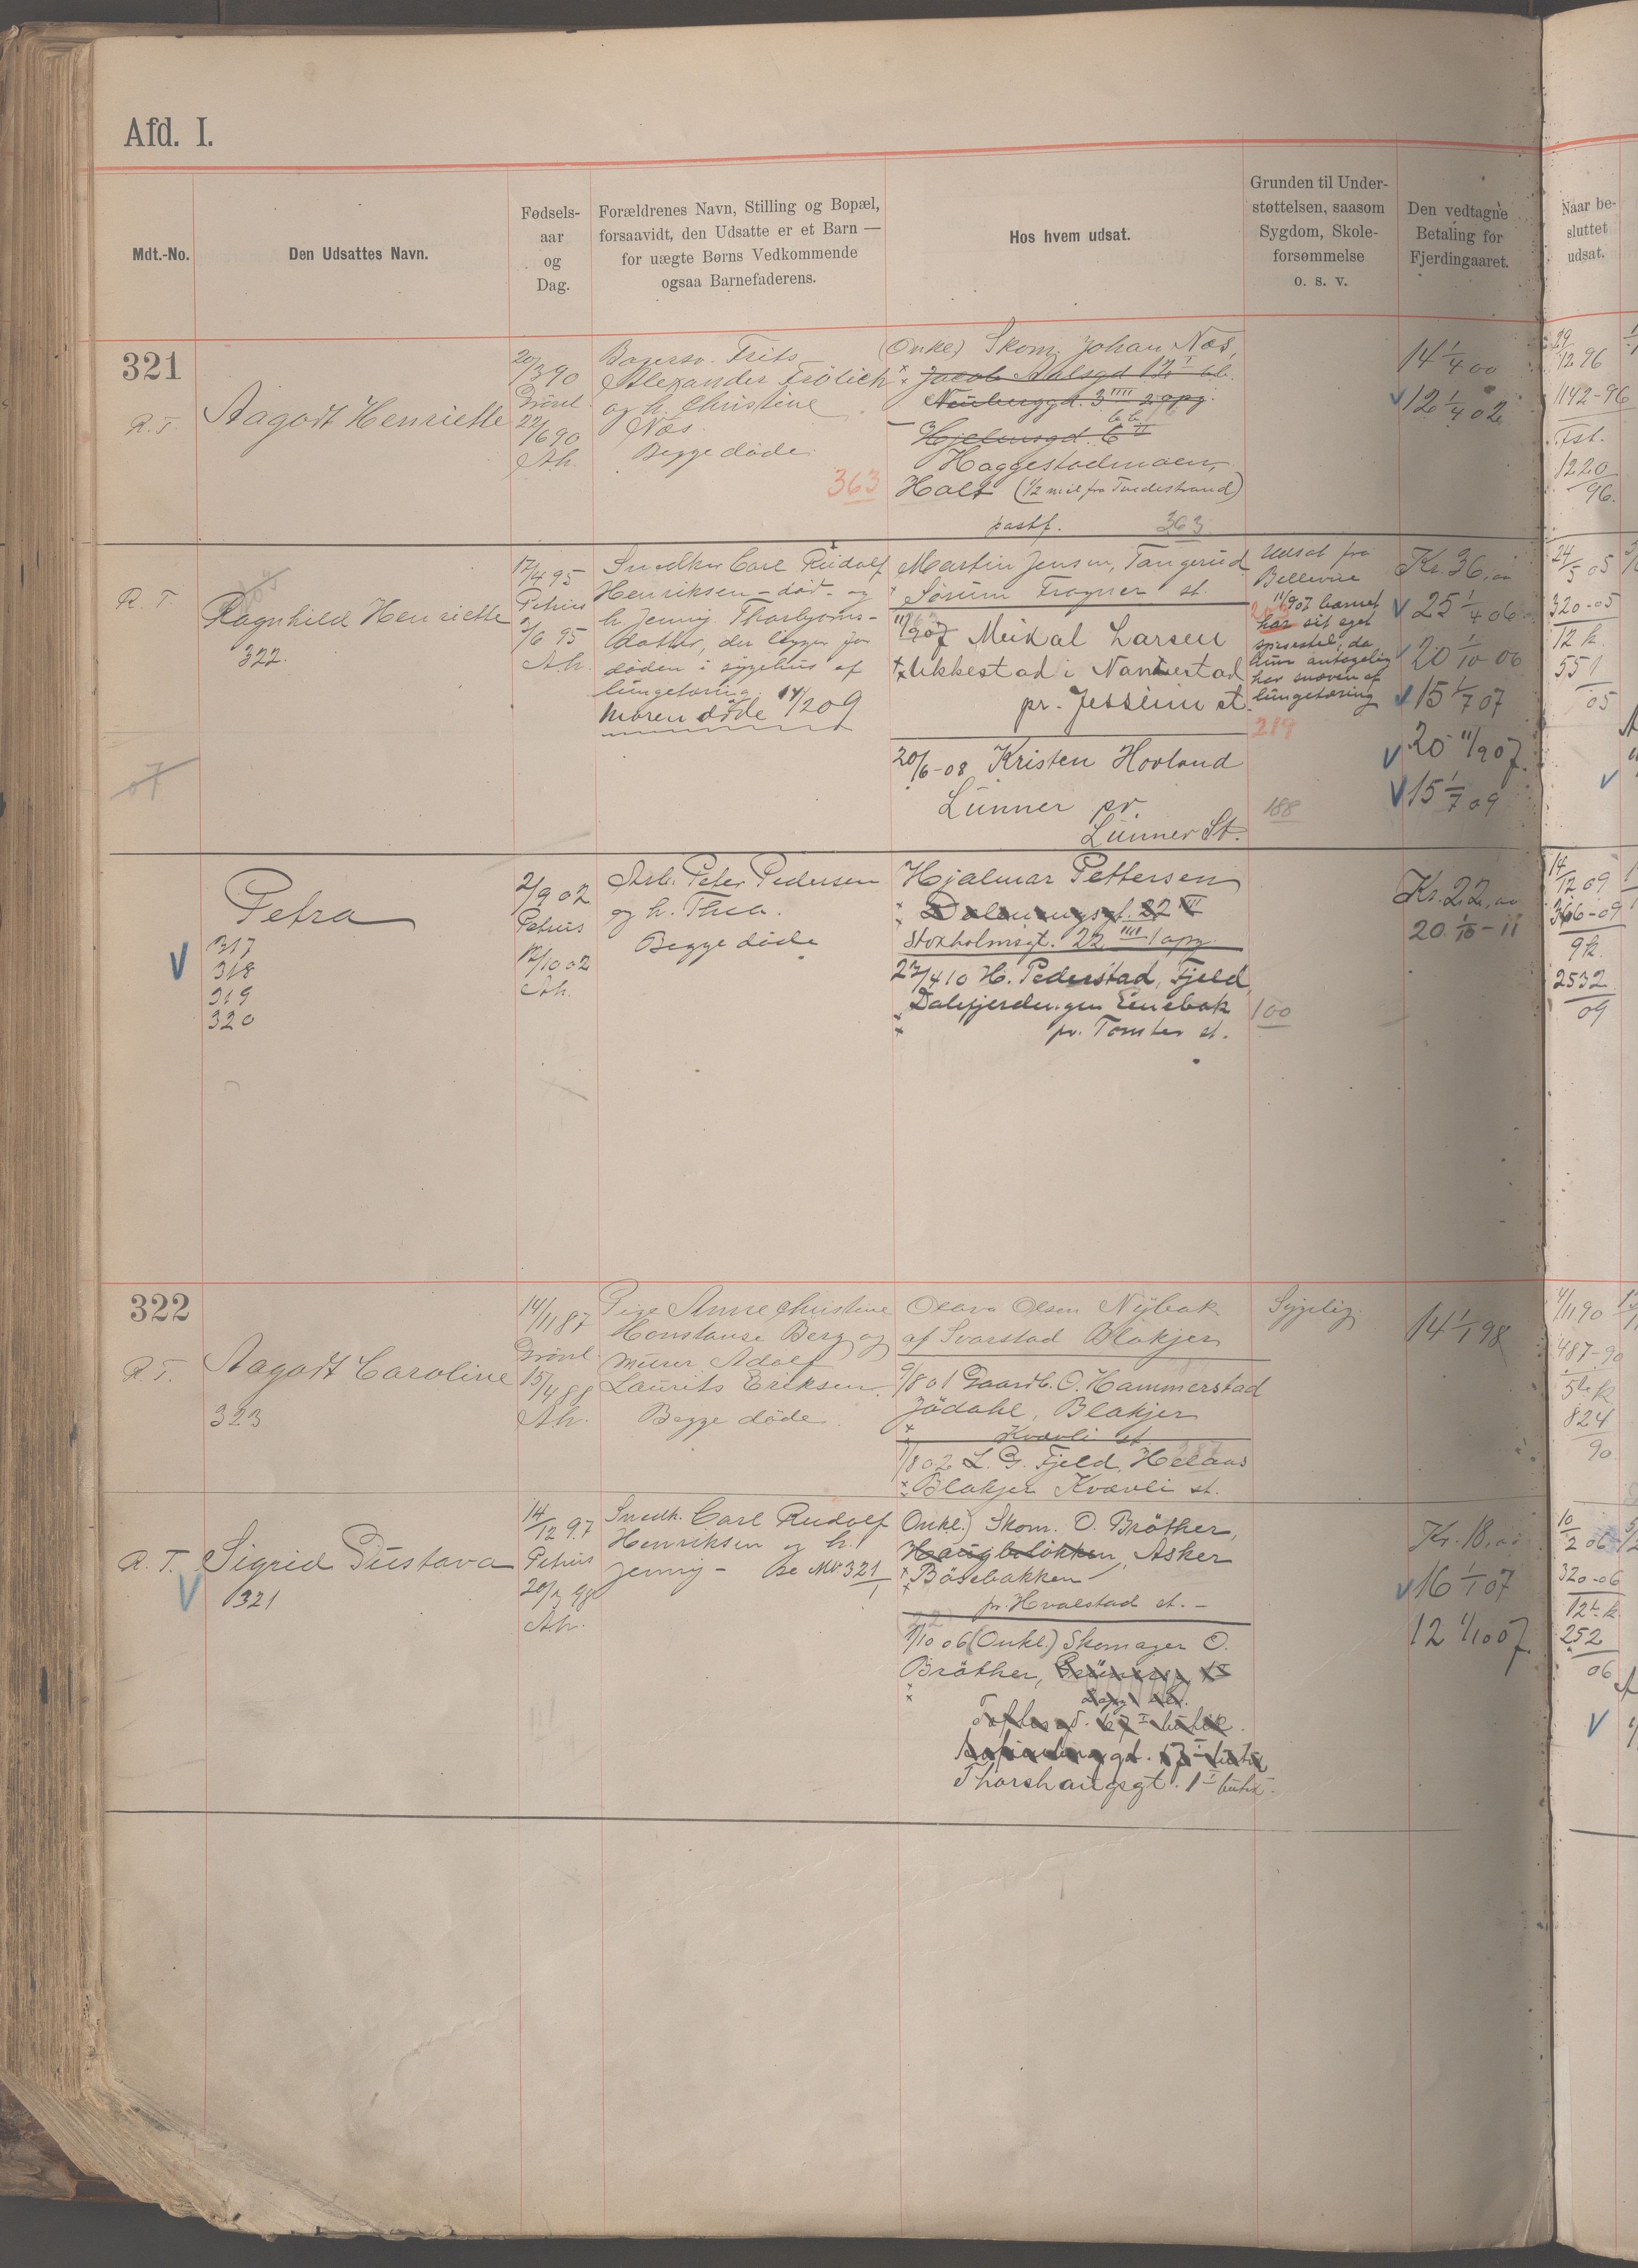 Afd. I.
Mdt.-No.
Den Udsattes Navn.
Fødsels-
aar
og
Dag.
Forældrenes Navn, Stilling og Bopæl,
forsaavidt, den Udsatte er et Barn —
for uægte Børns Vedkommende
ogsaa Barnefaderens.
Hos hvem udsat.
Grunden til Under-
støttelsen, saasom
Sygdom, Skole-
forsømmelse
o. s. v.
Den vedtagne
Betaling for
Fjerdingaaret.
Naar be-
sluttet
udsat.
321
R. T.
Aagodt Henriette
20/3 90
Grönl.
22/6 90
Ah.
Bagersv. Frits
Alexander Frölich
og h. Christine
Næs.
Begge døde.
363
(Onkel) Skom. Johan Næs,
Jacob Aalsgd 12 I
Neuberggd. 3 IIII 2 opg.
Hjelmsgd. 6 II
Haggestadmoen,
Holt (1/2 mil fra Tvedestrand)
postf. 363
14 1/4 00
12 1/4 02
29/12 96
1142-96
Fst.
1220
96.
R. T.
Ragnhild Henriette
322.
07
17/4 95
Petrus
2/6 95
Ah.
Snedker Carl Rudolf
Henriksen - död - og
h. Jenny Thorbjørns-
datter, der ligger for
døden i sygehus af
lungetæring.
Moren døde 14/2 09
Martin Jensen, Tangerud
Sørum Frogner st.
11/9 07 Meikal Larsen
Ukkestad i Nannestad
pr. Jessheim st.
20/6-08 Kristen Hovland
Lunner pr.
Lunner St.
Udsat fra
Bellevue
11/9 07 barnet
har sit eget
spisestel, da
hun antagelig
har snæven af
lungetæring
289
188
Kr. 36,00
25 1/4 06
20 1/10 06
15 1/7 07
20 11/9 07
15 1/7 09
24/5 05
320-05
12 k.
551
05
Petra
317
318
319
320
2/9 02
Petrus
12/10 02
Ah.
Arb. Peter Pedersen
og h. Thea.
Begge døde
Hjalmar Pettersen
Dalenengt. 22 III
Stockholmsgt. 22 IIII 1 opg.
27/4 10 H. Pederstad, Fjeld,
Dalefjerdingen Enebak
pr. Tomter st.
100
Kr. 22,00
20. 1/10 - 11
14/12 09
366-09
9 k.
2532
09
322
R. T.
Aagodt Caroline
323
14/11 87
Grönl.
15/4 88
Ah.
Pige Anne Christine
Konstanse Berg og
murer Adolf
Laurits Eriksen.
Begge døde.
Olava Olsen Nybak
af Svarstad Blakjer
9/8 01 Gaardb. O. Hammerstad
Jödahl, Blakjer
Kvævli st
1/8 02 L. G. Fjeld, Helaas
Blakjer Kvævli st.
Sygelig.
14 1/1 98
4/11 90
487-90
5te k
824
90
R. T.
Sigrid Gustava
321
14/12 97
Petrus
20/3 98
Ah.
Snedk. Carl Rudolf
Henriksen og h.
Jenny - Se Mt. 321/1
Onkel) Skom. O. Bröther,
Haugboløkken, Asker
Bösebakken
pr. Hvalstad st. -
1/10 06 (Onkel) Skomager O.
Bröther,
Toftesgd. 67 I butik
Thorshaugsgt. 1 I butik.
Kr. 18,00
16 1/1 07
12 1/10 07
10/2 06
320-06
12te k.
252
06